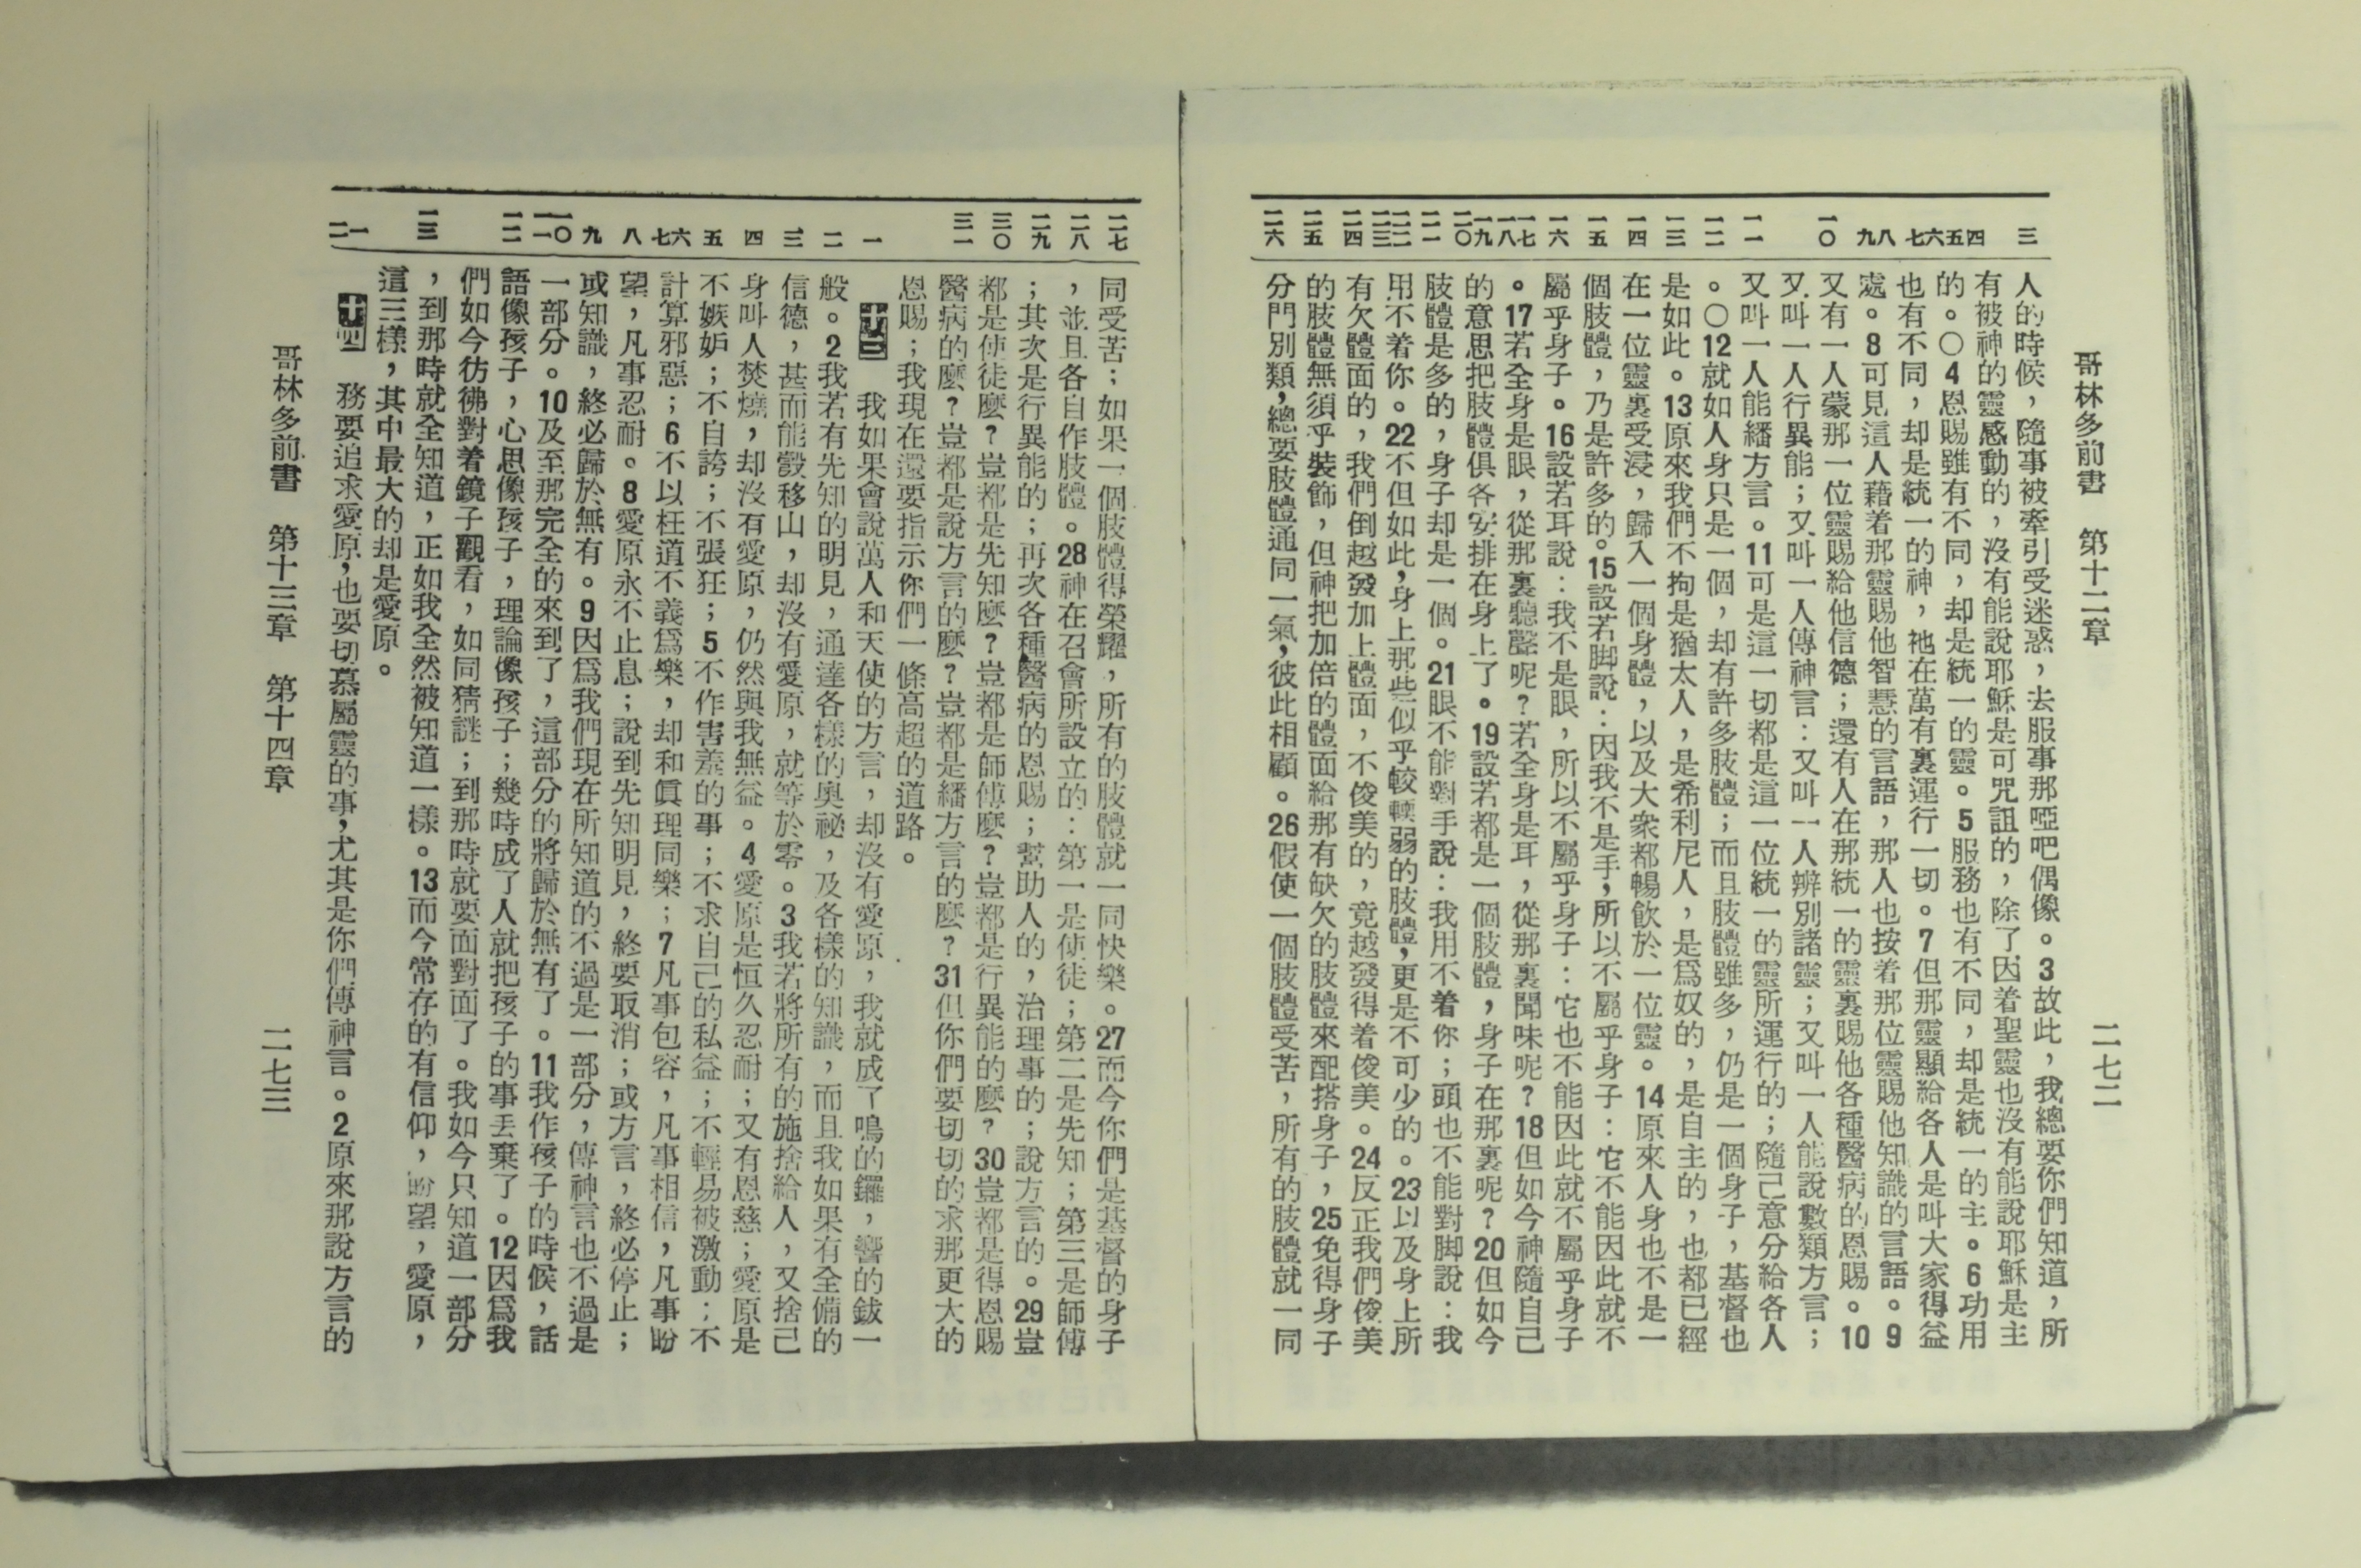 哥林多前書　第十二章　二七二
三　四五六七　八九　一〇　一一　一二　一三　一四　一五　一六　一七一八一九二〇　二一　二二二三　二四　二五　二六
人的時候，隨事被牽引受迷惑，去服事那啞吧偶像。3故此，我總要你們知道，所
有被神的靈感動的，沒有能說耶穌是可咒詛的，除了因着聖靈也沒有能說耶穌是主
的。〇4恩賜雖有不同，却是統一的靈。5服務也有不同，却是統一的主。6功用
也有不同，却是統一的神，祂在萬有裏運行一切。7但那靈顯給各人是叫大家得益
處。8可見這人藉着那靈賜他智慧的言語，那人也按着那位靈賜他知識的言語。9
又有一人蒙那一位靈賜給他信德；還有人在那統一的靈裏賜他各種醫病的恩賜。10
又叫一人行異能；又叫一人傳神言：又叫一人辨別諸靈；又叫一人能說數類方言；
又叫一人能繙方言。11可是這一切都是這一位統一的靈所運行的；隨己意分給各人
。〇12就如人身只是一個，却有許多肢體；而且肢體雖多，仍是一個身子，基督也
是如此。13原來我們不拘是猶太人，是希利尼人，是爲奴的，是自主的，也都已經
在一位靈裏受浸，歸入一個身體，以及大衆都暢飲於一位靈。14原來人身也不是一
個肢體，乃是許多的。15設若脚說：因我不是手，所以不屬乎身子：它不能因此就不
屬乎身子。16設若耳說：我不是眼，所以不屬乎身子：它也不能因此就不屬乎身子
。17若全身是眼，從那裏聽聲呢？若全身是耳，從那裏聞味呢？18但如今神隨自己
的意思把肢體俱各安排在身上了。19設若都是一個肢體，身子在那裏呢？20但如今
肢體是多的，身子却是一個。21眼不能對手說：我用不着你；頭也不能對脚說：我
用不着你。22不但如此，身上那些似乎較輭弱的肢體，更是不可少的。23以及身上所
有欠體面的，我們倒越發加上體面，不俊美的，竟越發得着俊美。24反正我們俊美
的肢體無須乎裝飾，但神把加倍的體面給那有缺欠的肢體來配搭身子，25免得身子
分門別類，總要肢體通同一氣，彼此相顧。26假使一個肢體受苦，所有的肢體就一同
二七　二八　二九　三〇　三一　一　二　三　四　五　六七　八　九　一〇一一　一二　一三　一二
同受苦；如果一個肢體得榮耀，所有的肢體就一同快樂。27而今你們是基督的身子
，並且各自作肢體。28神在召會所設立的：第一是使徒；第二是先知；第三是師傅
；其次是行異能的；再次各種醫病的恩賜；幫助人的，治理事的；說方言的。29豈
都是使徒麼？豈都是先知麼？豈都是師傅麼？豈都是行異能的麼？30豈都是得恩賜
醫病的麼？豈都是說方言的麼？豈都是繙方言的麼？31但你們要切切的求那更大的
恩賜；我現在還要指示你們一條高超的道路。
十三　我如果會說萬人和天使的方言，却沒有愛原，我就成了鳴的鑼，響的鈸一
般。2我若有先知的明見，通達各樣的奧祕，及各樣的知識，而且我如果有全備的
信德，甚而能彀移山，却沒有愛原，就等於零。3我若將所有的施捨給人，又捨己
身叫人焚燒，却沒有愛原，仍然與我無益。4愛原是恒久忍耐；又有恩慈；愛原是
不嫉妒；不自誇；不張狂；5不作害羞的事；不求自己的私益；不輕易被激動；不
計算邪惡；6不以枉道不義爲樂，却和眞理同樂；7凡事包容，凡事相信，凡事盼
望，凡事忍耐。8愛原永不止息；說到先知明見，終要取消；或方言，終必停止；
或知識，終必歸於無有。9因爲我們現在所知道的不過是一部分，傳神言也不過是
一部分。10及至那完全的來到了，這部分的將歸於無有了。11我作孩子的時候，話
語像孩子，心思像孩子，理論像孩子；幾時成了人就把孩子的事丟棄了。12因爲我
們如今彷彿對着鏡子觀看，如同猜謎；到那時就要面對面了。我如今只知道一部分
，到那時就全知道，正如我全然被知道一樣。13而今常存的有信仰，盼望，愛原，
這三樣，其中最大的却是愛原。
十四　務要追求愛原，也要切慕屬靈的事，尤其是你們傳神言。2原來那說方言的
哥林多前書　第十三章　第十四章　二七三